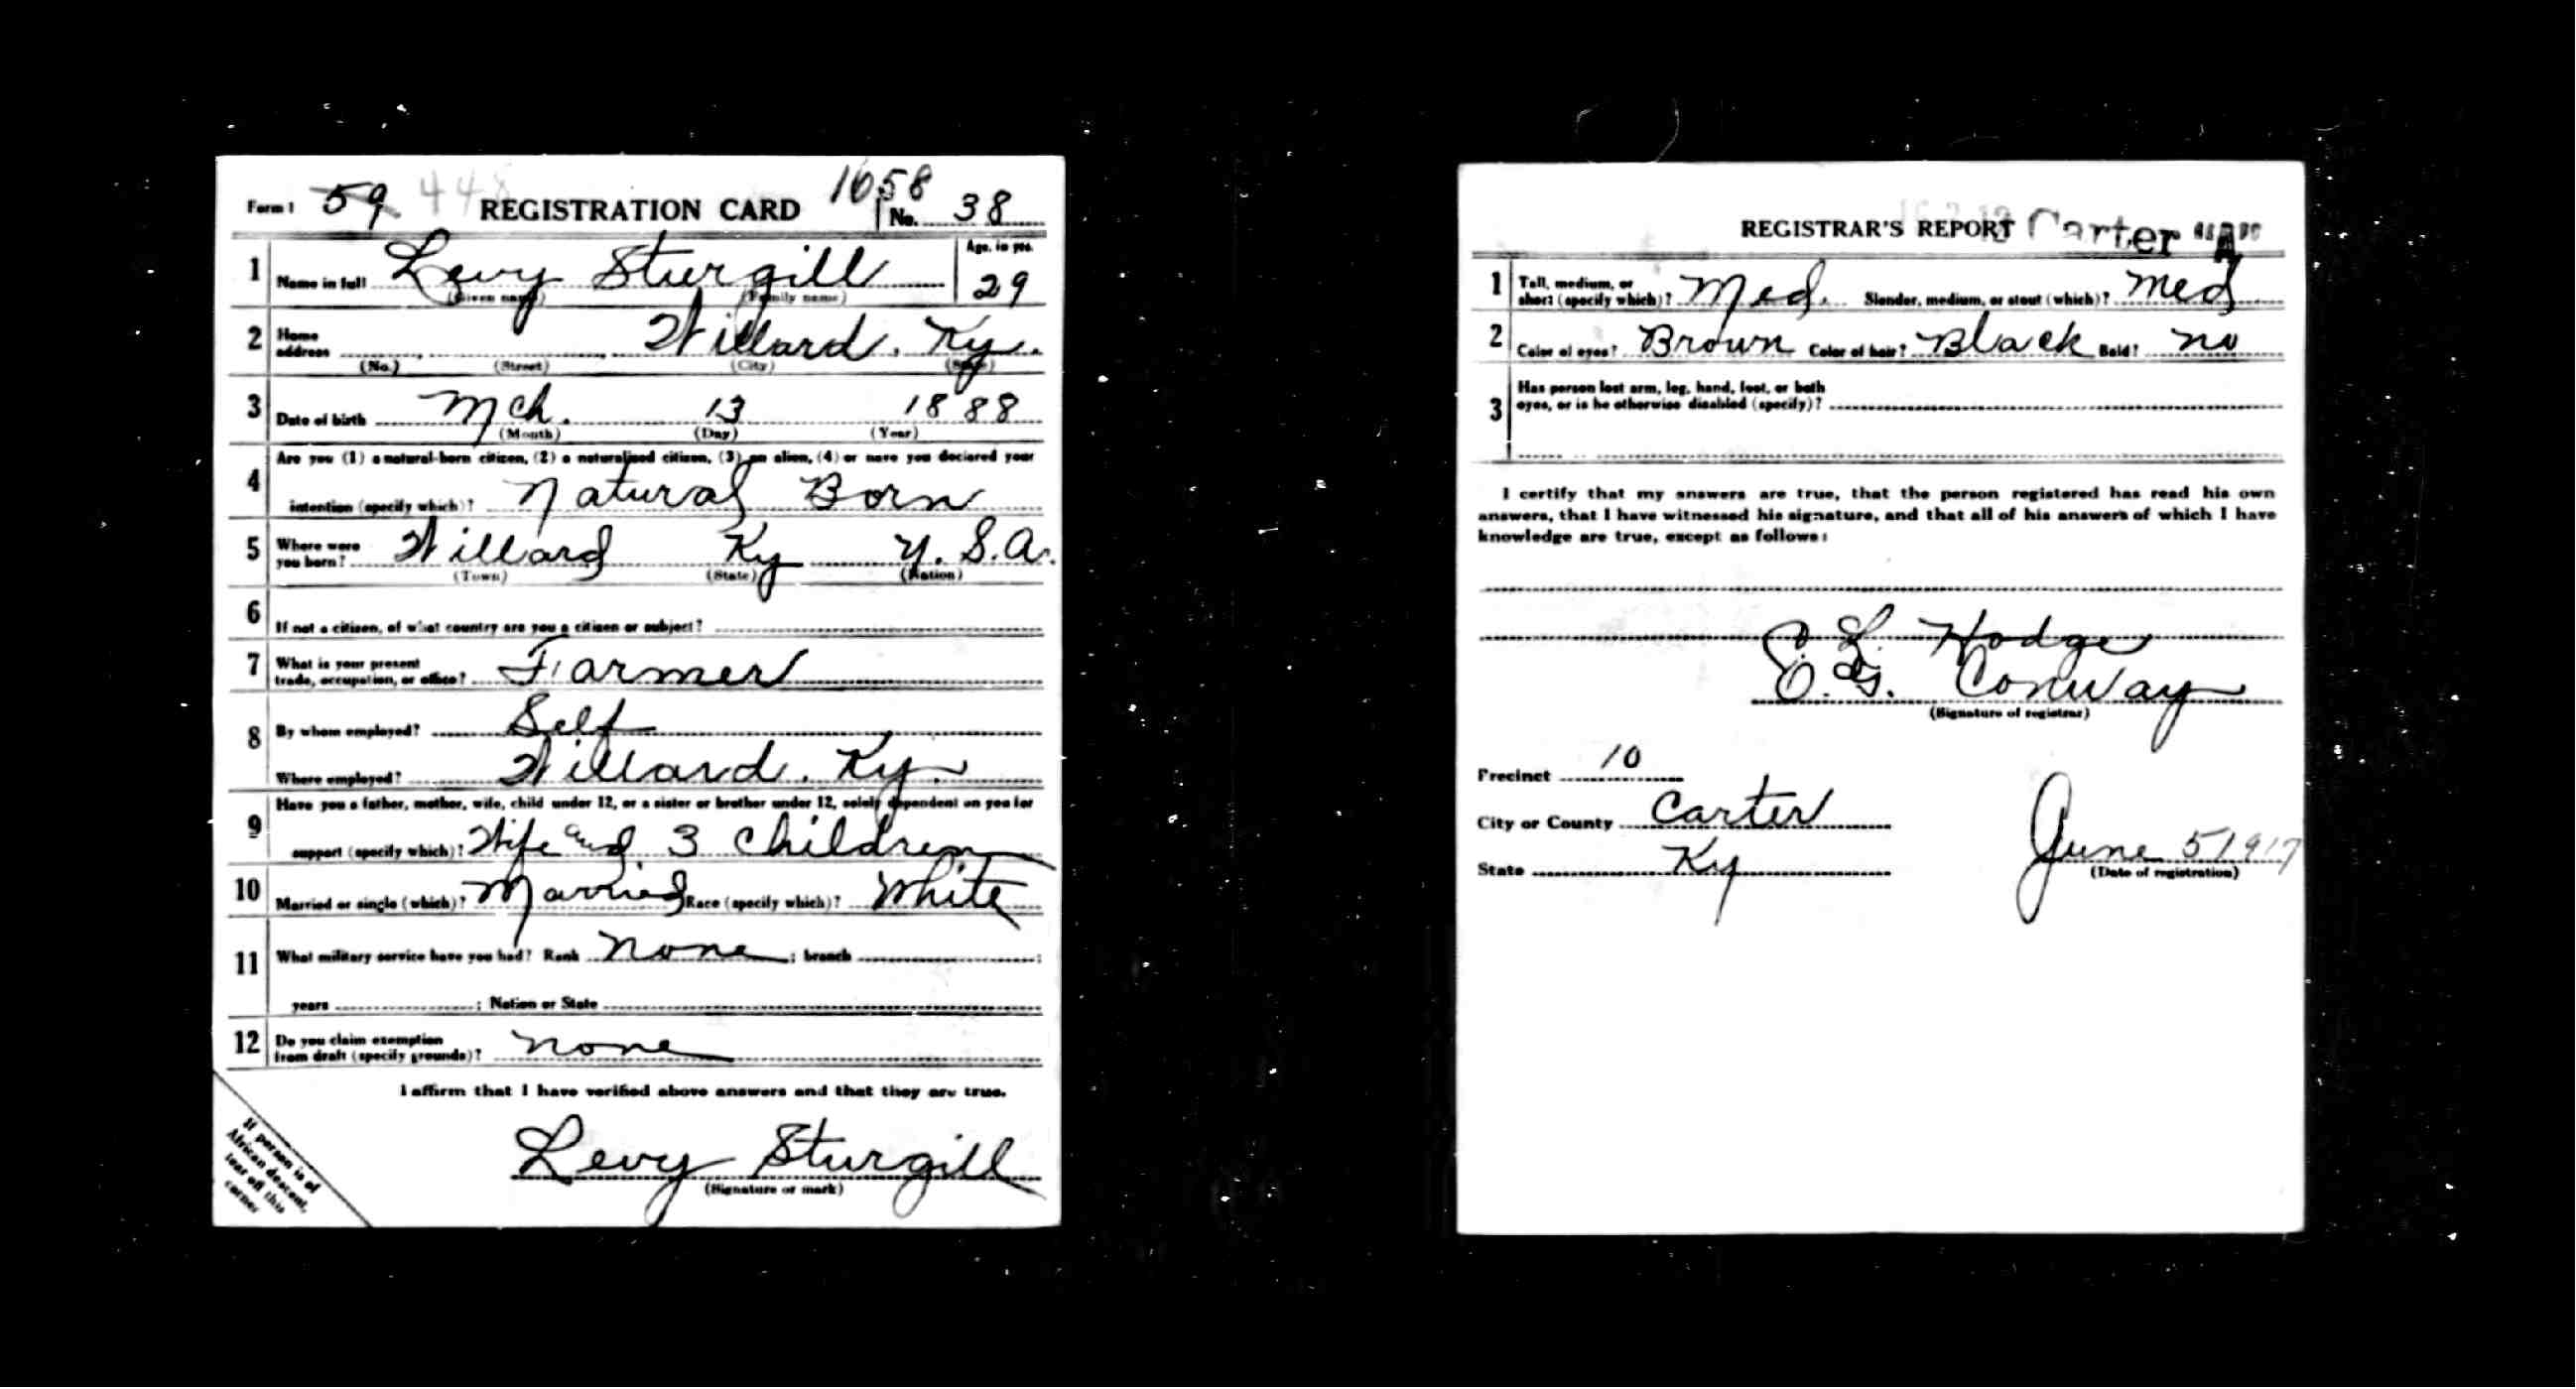 Form 1 59 448 REGISTRATION CARD 1658 No. 38
1 Name in full Levy Sturgill Age, in yrs. 29
(Given name) (Family name)
2 Home address Willard, Ky.
(No.) (Street) (City) (State)
3 Date of birth Mch. 13 1888
(Month) (Day) (Year)
4 Are you (1) a natural-born citizen, (2) a naturalized citizen, (3) an alien, (4) or have you declared your
intention (specify which)? Natural Born
5 Where were you born? Willard Ky U.S.A.
(Town) (State) (Nation)
6 If not a citizen, of what country are you a citizen or subject?
7 What is your present trade, occupation, or office? Farmer
8 By whom employed? Self
Where employed? Willard. Ky.
9 Have you a father, mother, wife, child under 12, or a sister or brother under 12, solely dependent on you for
support (specify which)? Wife and 3 children
10 Married or single (which)? Married Race (specify which)? White
11 What military service have you had? Rank none ; branch ;
years ; Nation or State
12 Do you claim exemption from draft (specify grounds)? none
I affirm that I have verified above answers and that they are true.
Levy Sturgill
(Signature or mark)
If person is of
African descent,
tear off this
corner
REGISTRAR'S REPORT Carter
1 Tall, medium, or short (specify which)? Med. Slender, medium, or stout (which)? Med
2 Color of eyes? Brown Color of hair? Black Bald? no
3 Has person lost arm, leg, hand, foot, or both
eyes, or is he otherwise disabled (specify)?
I certify that my answers are true, that the person registered has read his own
answers, that I have witnessed his signature, and that all of his answers of which I have
knowledge are true, except as follows:
E. L. Hodge
E. G. Conway
(Signature of registrar)
Precinct 10
City or County Carter
State Ky
June 5 1917
(Date of registration)